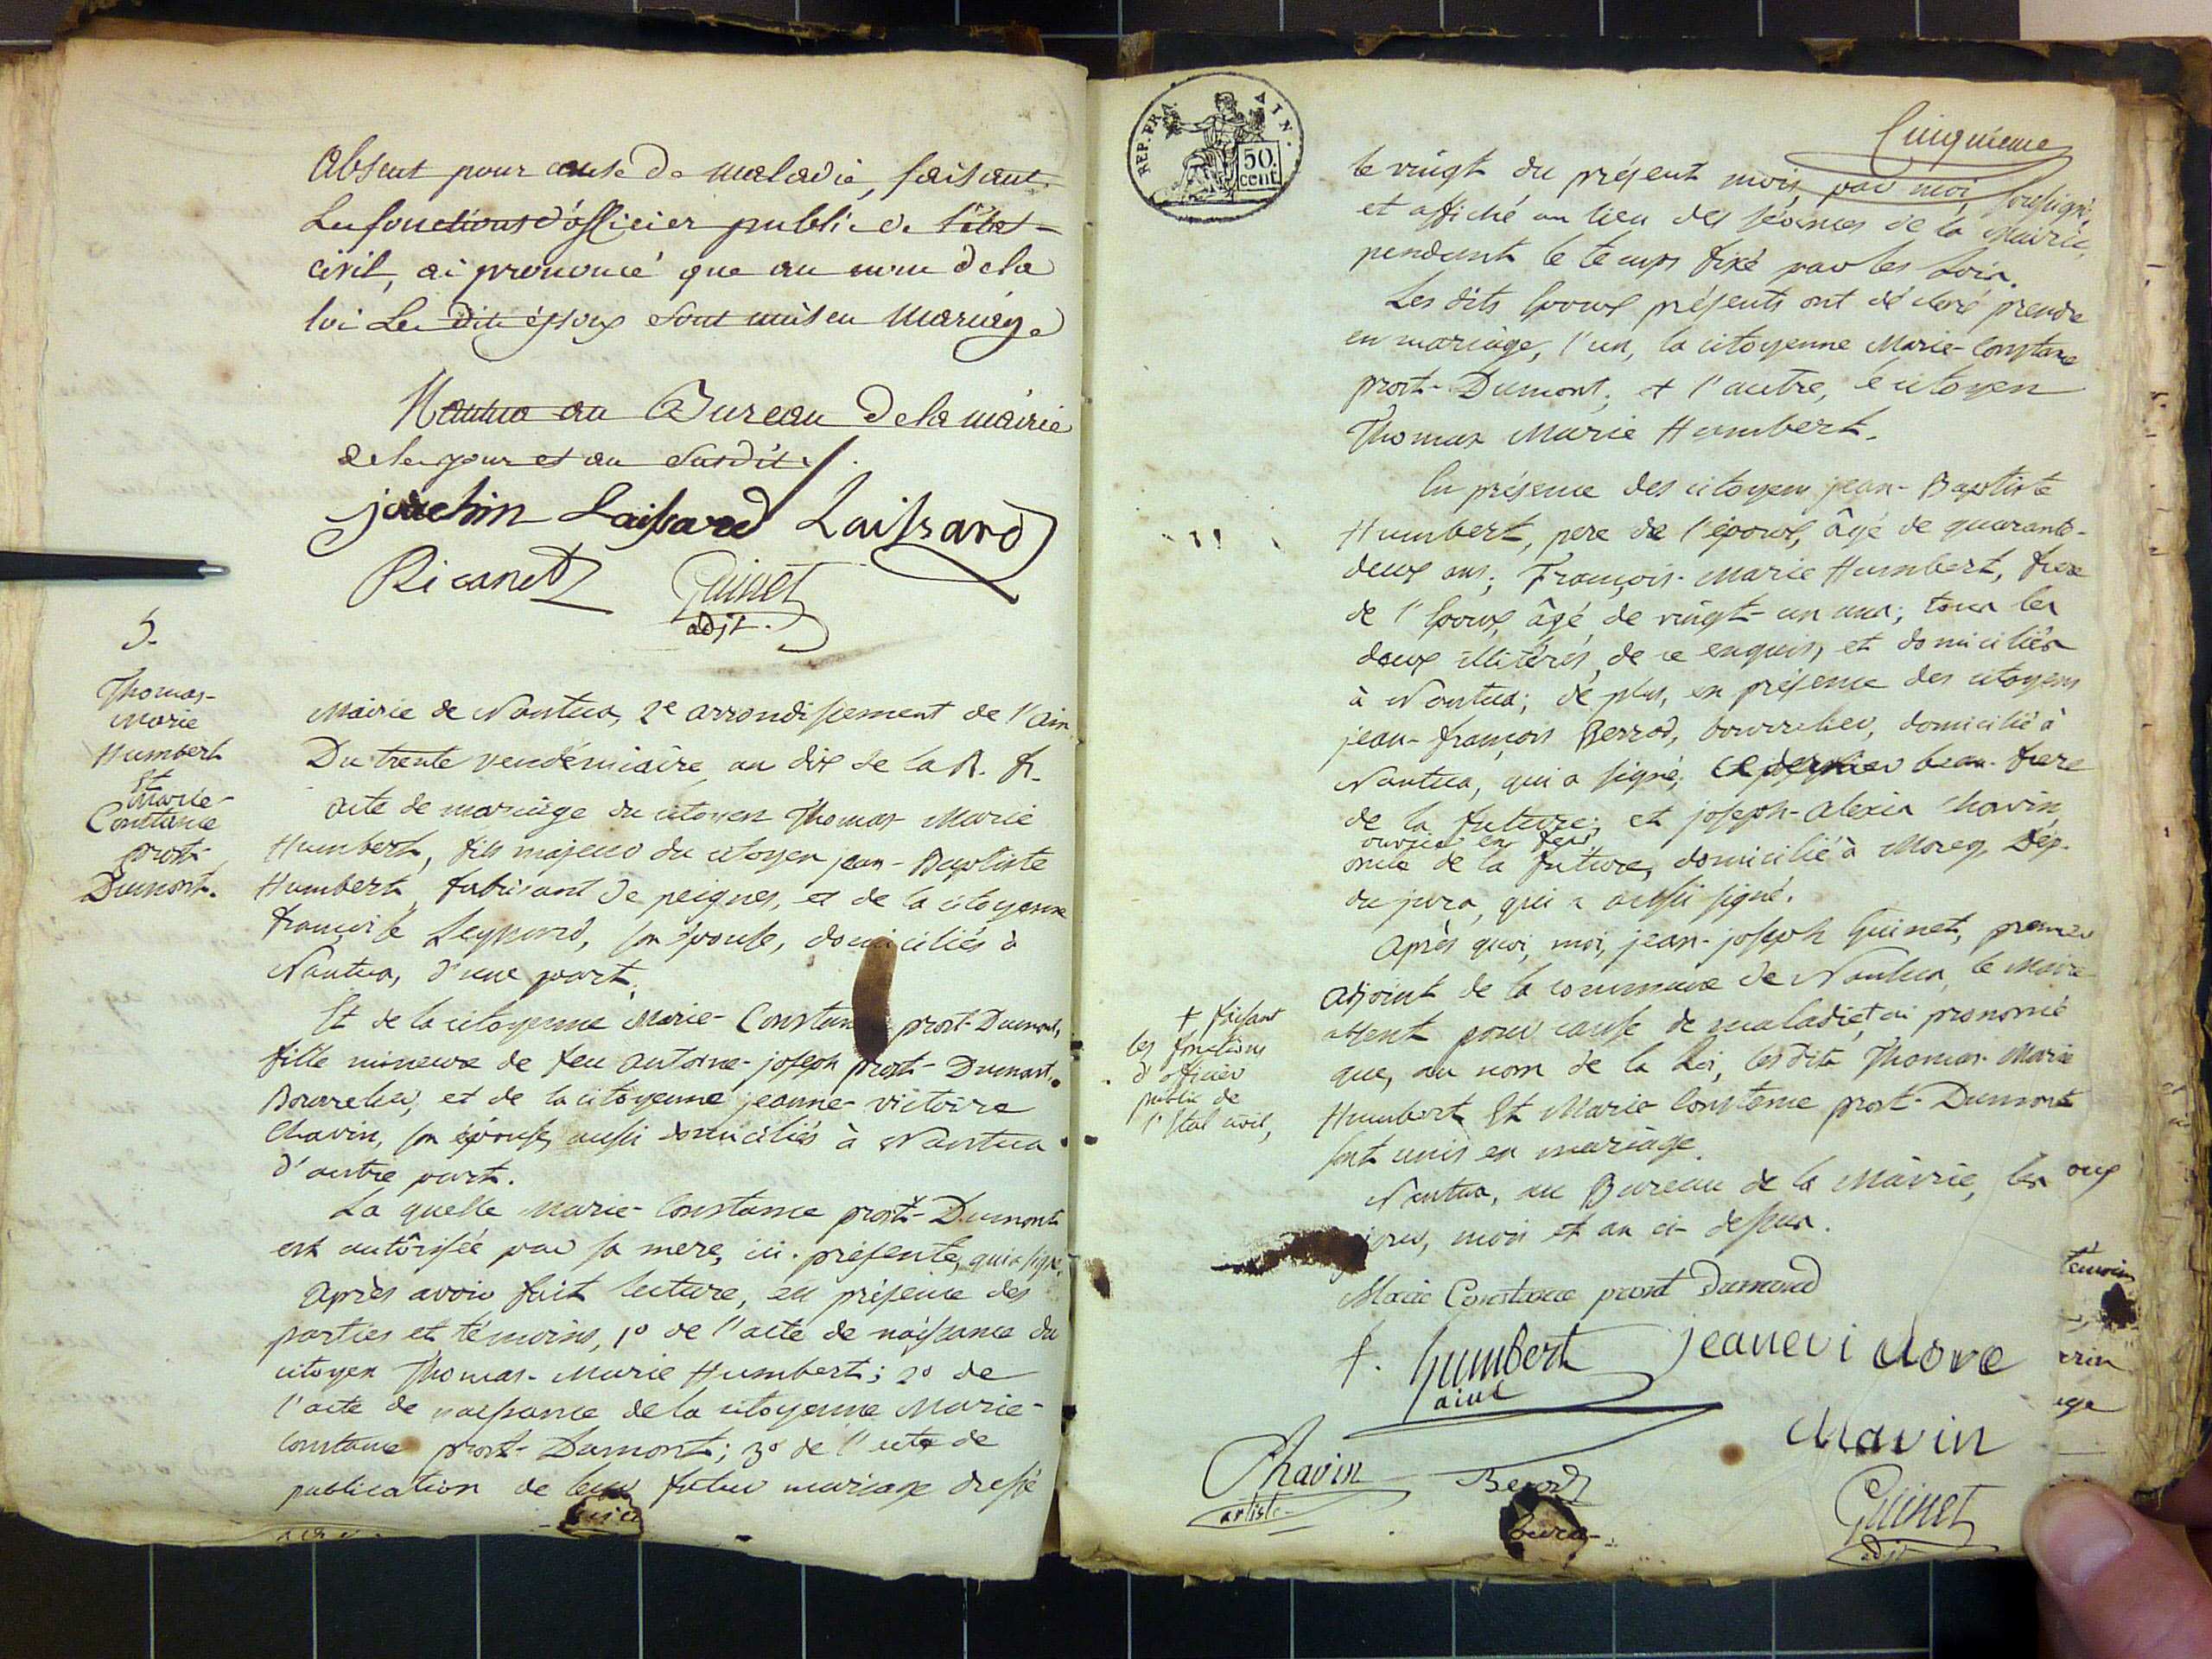 Absent pour cause de maladie, faisant
Les fonctions d'officier public de l'état
civil, ai prononcé que au nom de la
loi Les dits époux sont unis en Mariage
Nantua au Bureau de la mairie
de les jour et an susdit.
joachin Laissard Laissard
Ricanet Guinet
adjt.
5.
Thomas-
Marie
Humbert
Et
Marie-
Constance
prost-
Dumont.
Mairie de Nantua, 2e arrondissement de l'ain
Du trente vendémiaire an dix de la R. fr.
acte de mariage du citoyen Thomas Marie
Humbert, fils majeur du citoyen jean-Baptiste
Humbert, fabricant de peignes, et de la citoyenne
françoise Seyssard, son épouse, domiciliés à
Nantua, d'une part.
Et de la citoyenne Marie-Constance prost-Dumont,
fille mineure de feu antoine-joseph prost-Dumont,
Bourrelier, et de la citoyenne jeanne-victoire
Chavin, son épouse, aussi domiciliés à Nantua
d'autre part.
La quelle Marie-Constance prost-Dumont
est autôrisée par sa mere, ici-présente, qui a signé.
après avoir fait lecture, en présence des
parties et témoins, 1o de l'acte de naissance du
citoyen Thomas-Marie Humbert; 2o de
l'acte de naissance de la citoyenne Marie-
Constance prost-Dumont; 3o de l'acte de
publication de leur futur mariage dressé
REP. FRA. AIN.
50.
cent.
Cinquieme
le vingt du présent mois, par moi, soussigné,
et affiché au lieu des séances de la Mairie,
pendant le temps fixé par les Loix.
Les dits époux présents ont déclaré prendre
en mariage, l'un, la citoyenne Marie-Constance
prost-Dumont, et l'autre, le citoyen
Thomas Marie Humbert.
En présence des citoyens jean-Baptiste
Humbert, pere de l'époux, âgé de quarante-
deux ans; François-Marie Humbert, frere
de l'époux, âgé de vingt-un ans; tous les
deux illitérés, de ce enquis, et domiciliés
à Nantua; de plus, en présence des citoyens
jean-françois Berrod, bourrelier, domicilié à
Nantua, qui a signé, ce dernier beau-frere
de la future; et joseph-alexis Chavin,
ouvrier en fer,
oncle de la future, domicilié à Morez, Dép.
du jura, qui a aussi signé.
après quoi, moi, jean-joseph Guinet, premier
adjoint de la commune de Nantua, le Maire
absent pour cause de maladie, + ai prononcé
que, au nom de la Loi, lesdits Thomas-Marie
Humbert Et Marie Constance prost-Dumont
sont unis en mariage.
Nantua, au Bureau de la Mairie, les
jour, mois et an ci-dessus.
+ faisant
les fonctions
d'officier
public de
l'Etat civil,
Marie Constance prost Dumond
f. humbert jeanevi ctore
ainé
Chavin
Chavin Berrod
artiste
Guinet
adjt
oux
témoins